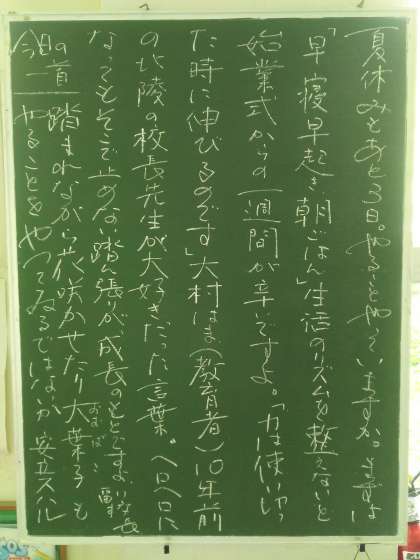 夏休みもあと3日。やることやっていますか。まずは
「早寝早起き朝ごはん」生活のリズムを整えないと
始業式からの一週間が辛いですよ。「力は使い切っ
た時に伸びるのです」大村はま(教育者)10年前
の北陵の校長先生が大好きだった言葉。ヘロヘロに
なってもそこで止めない踏ん張りが成長のもとですよ。
今日の一首
踏まれながら花咲かせたり大葉子も
おおばこ
やることをやってゐるではないか 安立スハル